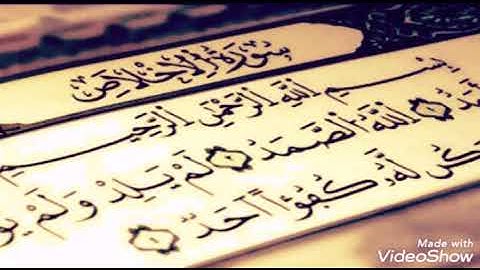 سُورَةُ الإِخْلَاصِ
بِسْمِ اللَّهِ الرَّحْمَٰنِ الرَّحِيمِ
اللَّهُ الصَّمَدُ ۝ لَمْ يَلِدْ وَلَمْ
لَهُ كُفُوًا أَحَدٌ ۝
Made with
VideoShow